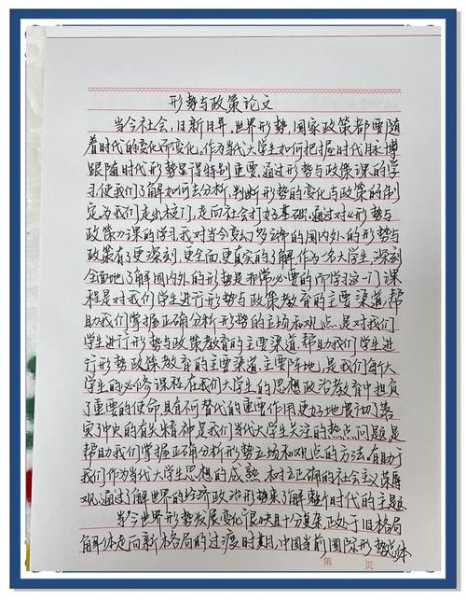 形势与政策论文
当今社会,日新月异,世界形势,国家政策都要随
着时代的变化而变化,作为当代大学生如何把握时代脉搏
跟随时代形势显得特别重要,通过形势与政策课的学
习,使我们了解如何去分析,判断形势的变化与政策的制
定为我们走出校门,走向社会打好基础,通过对《形势与
政策》课的学习,我对当今变幻多端的国内外的形势与
政策有了更深刻,更全面,更真实的了解,作为一名大学生,深刻
全面地了解国内外的形势是非常必要的,而学习这一门课
程是对我们学生进行形势与政策教育的主要渠道,帮
助我们掌握正确分析形势的立场和观点,是对我们
学生进行形势与政策教育的主要渠道,帮助我们学生进
行形势政策教育的主要渠道,主要阵地,是我们每个大
学生的必修课程,在我们大学生的思想政治教育中担负
了重要的使命,具有不可替代的重要作用,更好地贯彻了落
实了中央的有关精神,是我们当代大学生关注的热点问题,是
帮助我们掌握正确分析形势立场和观点的方法,有助于
我们作为当代大学生思想的成熟,和树立正确的社会主义荣辱
观,通过了解世界的经济政治形势来了解整个时代的主题
当今世界形势发展变化很快且十分复杂,处于旧格局
解体走向新格局的过渡时期,中国当前国际形势总体
第 页